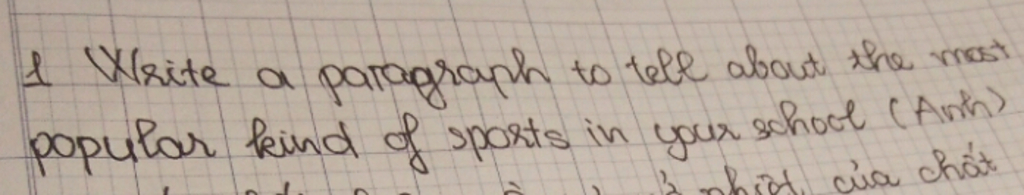 1 Write a paragraph to tell about the most
popular kind of sports in your school (Anh)
của chất